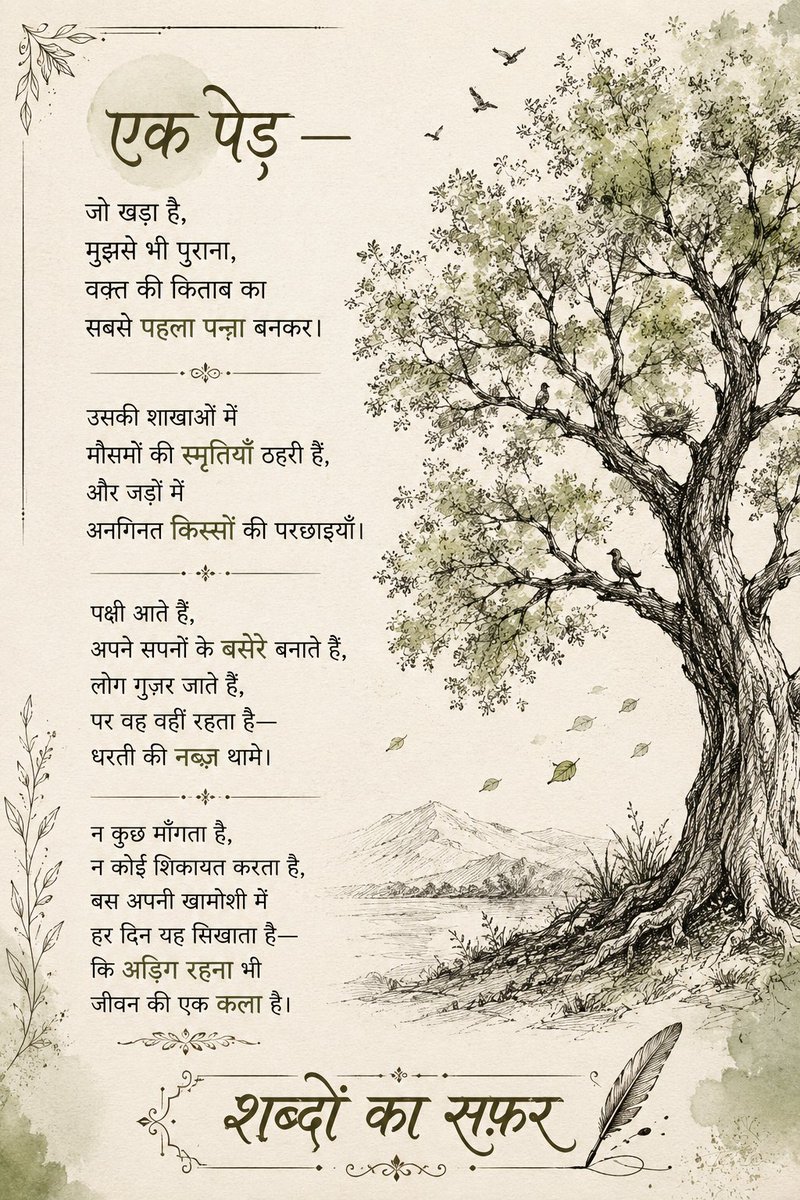 एक पेड़ —
जो खड़ा है,
मुझसे भी पुराना,
वक़्त की किताब का
सबसे पहला पन्ना बनकर।
उसकी शाखाओं में
मौसमों की स्मृतियाँ ठहरी हैं,
और जड़ों में
अनगिनत किस्सों की परछाइयाँ।
पक्षी आते हैं,
अपने सपनों के बसेरे बनाते हैं,
लोग गुज़र जाते हैं,
पर वह वहीं रहता है—
धरती की नब्ज़ थामे।
न कुछ माँगता है,
न कोई शिकायत करता है,
बस अपनी खामोशी में
हर दिन यह सिखाता है—
कि अड़िग रहना भी
जीवन की एक कला है।
शब्दों का सफ़र